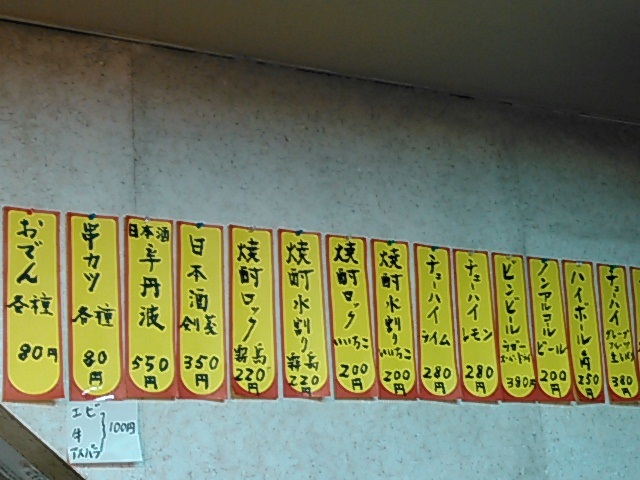 おでん
各種
80円
串カツ
各種
80
円
エビ
牛
アスパラ
100円
日本酒
辛丹波
550
円
日本酒
剣菱
350
円
焼酎ロック
霧島
220
円
焼酎水割り
霧島
220
円
焼酎ロック
いいちこ
200
円
焼酎水割り
いいちこ
200
円
チューハイ
ライム
280
円
チューハイ
レモン
280
円
ビンビール
ラガー
スーパードライ
380円
ノンアルコール
ビール
200
円
ハイボール
角
250
円
チューハイ
グレープ
フルーツ
生しぼり
380
円